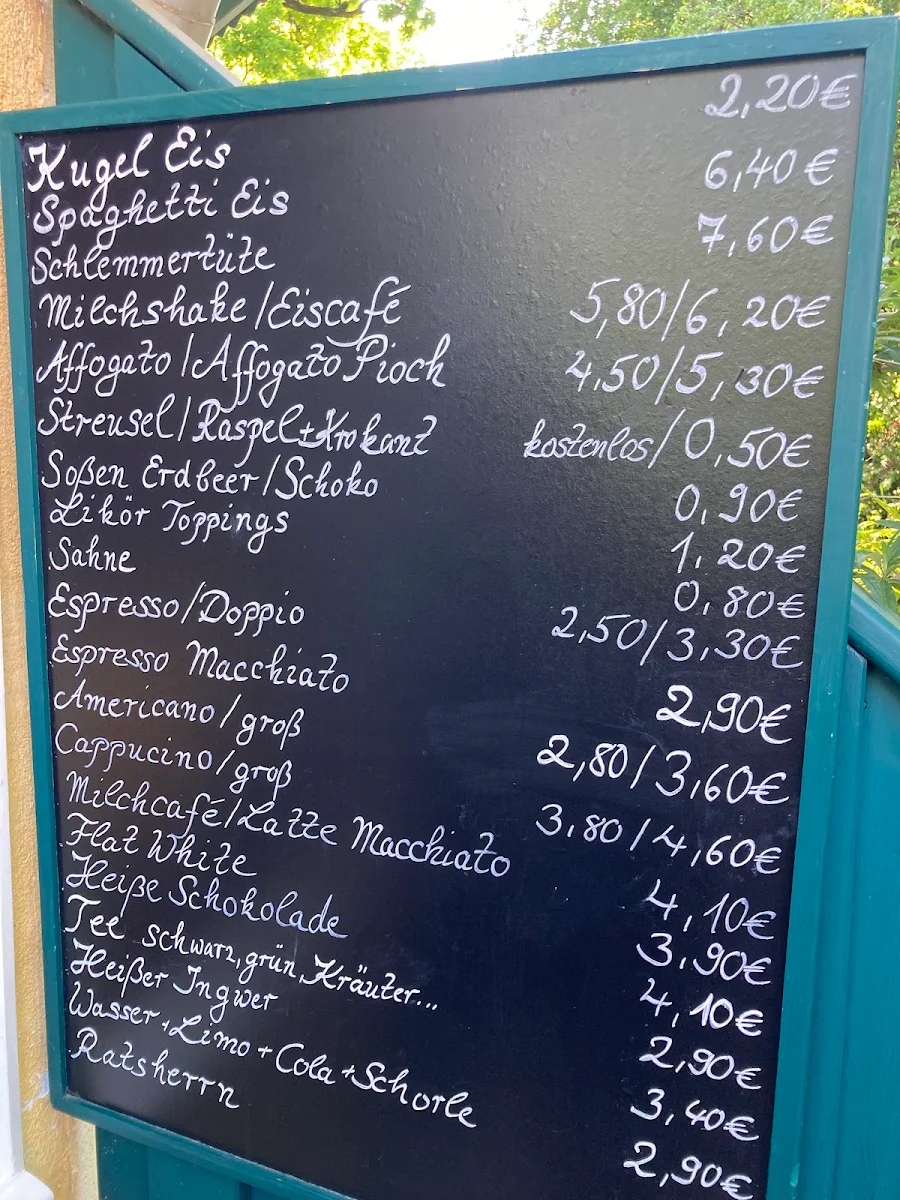 Kugel Eis 2,20€
Spaghetti Eis 6,40€
Schlemmertüte 7,60€
Milchshake/Eiscafé 5,80/6,20€
Affogato/Affogato Pioch 4,50/5,30€
Streusel/Raspel+Krokant kostenlos/0,50€
Soßen Erdbeer/Schoko 0,90€
Likör Toppings 1,20€
Sahne 0,80€
Espresso/Doppio 2,50/3,30€
Espresso Macchiato 2,90€
Americano/groß 2,80/3,60€
Cappucino/groß 3,80/4,60€
Milchcafé/Latte Macchiato 4,10€
Flat White 3,90€
Heiße Schokolade 4,10€
Tee schwarz, grün, Kräuter... 2,90€
Heißer Ingwer 3,40€
Wasser+Limo+Cola+Schorle 2,90€
Ratsherrn